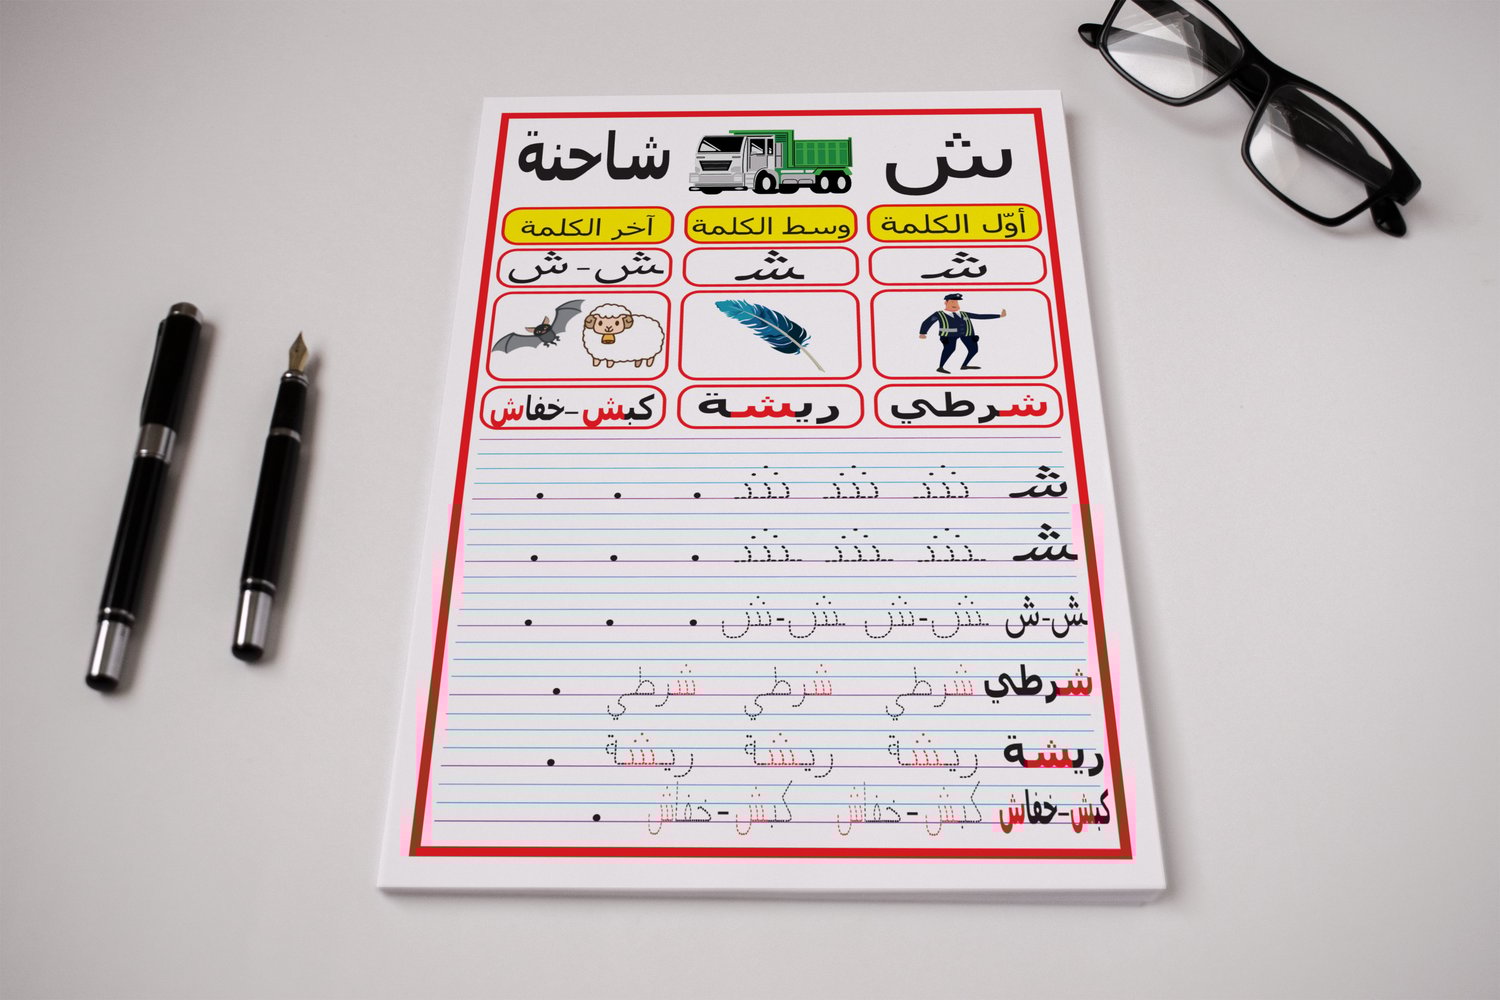 ش شاحنة
أوّل الكلمة وسط الكلمة آخر الكلمة
شـ ـشـ ـش - ش
شرطي ريشة كبش-خفاش
شـ شـ شـ شـ . . .
ـشـ ـشـ ـشـ ـشـ . . .
ـش-ش ـش-ش ـش-ش . . .
شرطي شرطي شرطي شرطي .
ريشة ريشة ريشة ريشة .
كبش-خفاش كبش-خفاش كبش-خفاش .